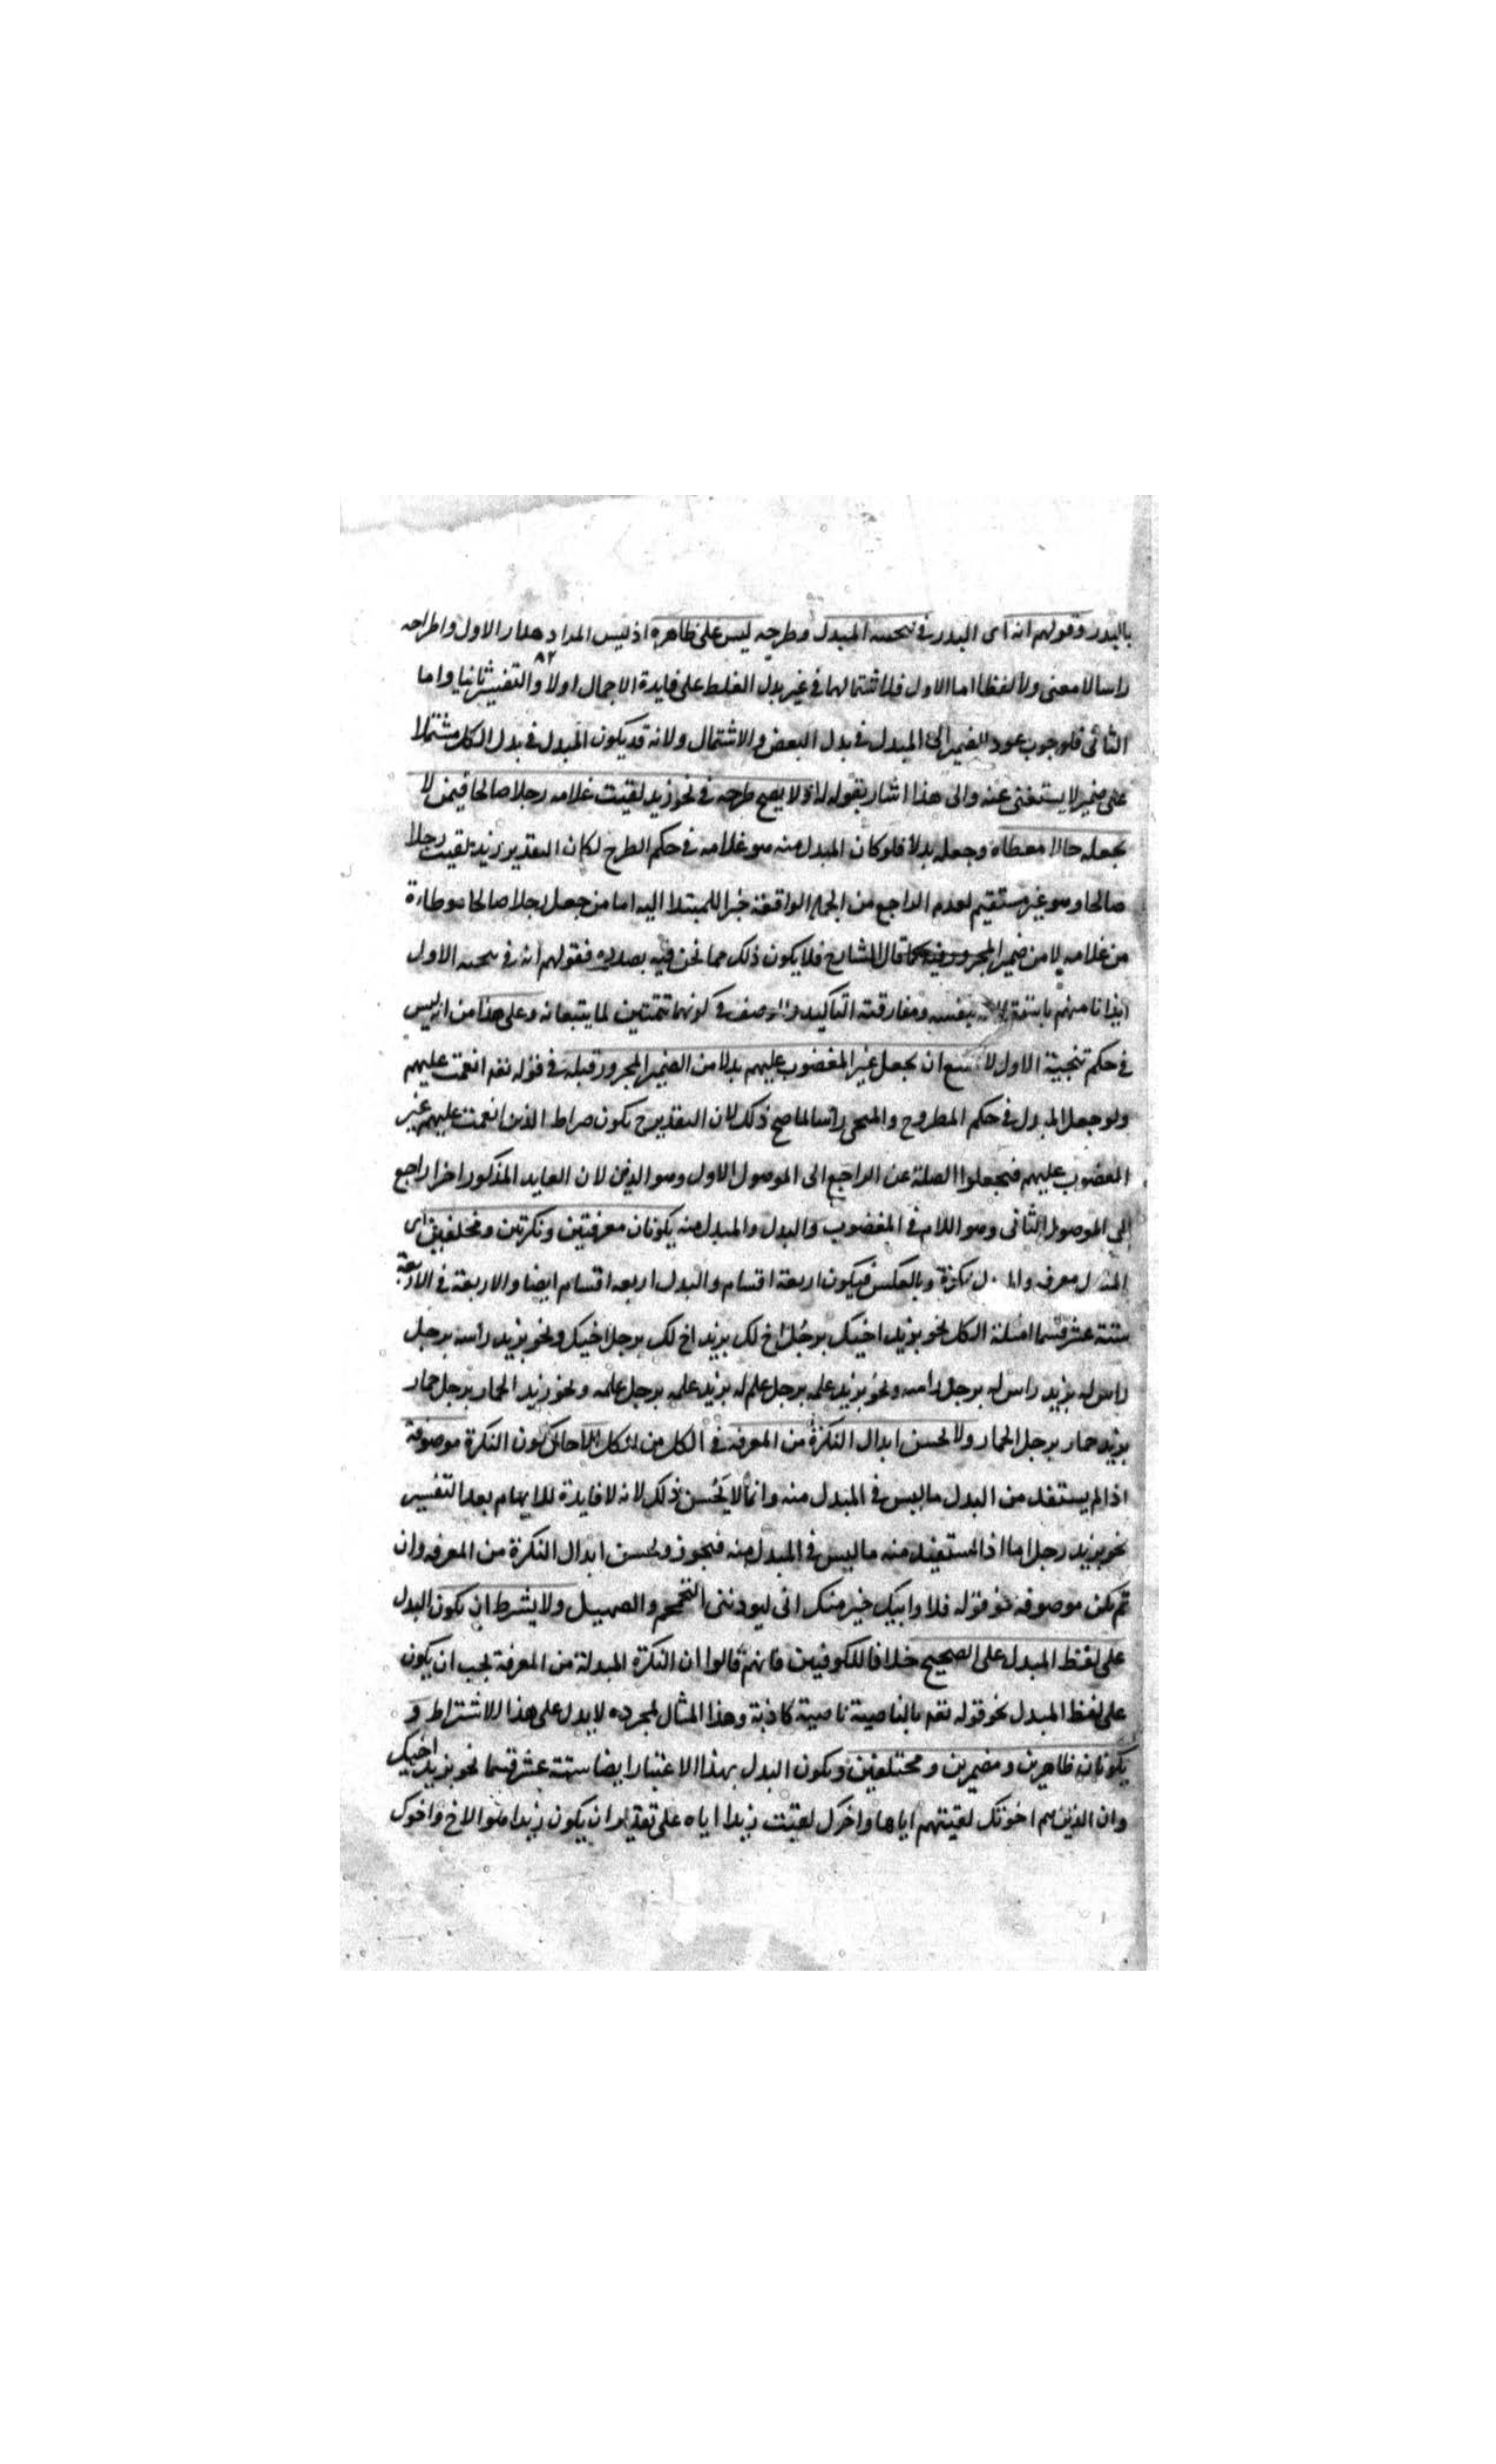 بالبدل وقولهم انه اى البدل فى تنحية المبدل وطرحه ليس على ظاهره اذ ليس المراد اهدار الاول واطراحه
٨٢
راسا لا معنى ولا لفظا اما الاول فلاشتمالهما فى غير بدل الغلط على فايدة الاجمال اولا والتفسير ثانيا واما
الثانى فلوجوب عود الضمير الى المبدل فى بدل البعض والاشتمال ولانه قد يكون المبدل فى بدل الكل مشتملا
على ضمير لا يستغنى عنه والى هذا اشار بقوله اذ لا يصح طرحه فى نحو زيد لقيت غلامه رجلا صالحا فيمن لا
يجعله حالا موطاه وجعله بدلا فلو كان المبدل منه هو غلامه فى حكم الطرح لكان التقدير زيد لقيت رجلا
صالحا وهو غير مستقيم لعدم الراجع من الجملة الواقعة خبرا للمبتدا اليه اما من جعل رجلا صالحا موطاءة
من غلامه لا من ضمير المجرور فيه كما قال الشارح فلا يكون ذلك مما نحن فيه بصدده فقولهم انه فى تنحية الاول
ايذانا منهم باستقلاله بنفسه ومفارقته التاكيد والوصف فى كونهما تتمتين لما يتبعانه وعلى هذا من انه ليس
فى حكم تنحية الاول لا يمتنع ان يجعل غير المغضوب عليهم بدلا من الضمير المجرور قبله فى قوله تعه انعمت عليهم
ولو جعل المبدل فى حكم المطروح والمنحى راسا لما صح ذلك لان التقدير ح يكون صراط الذين انعمت عليهم غير
المغضوب عليهم فيجعلوا الصلة عن الراجع الى الموصول الاول وهو الذين لان العايد المذكور اخرا راجع
الى الموصول الثانى وهو اللام فى المغضوب والبدل والمبدل منه يكونان معرفتين ونكرتين ومختلفين اى
المبدل معرفه والبدل نكرة وبالعكس فيكون اربعة اقسام والبدل اربعه اقسام ايضا والاربعة فى الاربعة
ستة عشر قسما امثلة الكل نحو بزيد اخيك برجل اخ لك بزيد اخ لك برجل اخيك ونحو بزيد راسه برجل
راس له بزيد راس له برجل راسه ونحو بزيد علمه برجل علم له بزيد علم له برجل علمه ونحو بزيد الحمار برجل حمار
بزيد حمار برجل الحمار ولا يحسن ابدال النكرة من المعرفه فى الكل من الكل الا حال كون النكرة موصوفة
اذا لم يستفد من البدل ما ليس فى المبدل منه وانما لا يحسن ذلك لانه لا فايدة للابهام بعد التفسير
نحو بزيد رجل اما اذا استفيد منه ما ليس فى المبدل منه فيجوز ويحسن ابدال النكرة من المعرفه وان
لم يكن موصوفه نحو قوله فلا وابيك خير منك انى ليوذننى التحمحم والصهيل ولا يشترط ان يكون البدل
على لفظ المبدل على الصحيح خلافا للكوفيين فانهم قالوا ان النكرة المبدلة من المعرفة يجب ان يكون
على لفظ المبدل نحو قوله تعه بالناصية ناصية كاذبة وهذا المثال لمجرده لا يدل على هذا الاشتراط و
يكونان ظاهرين ومضمرين ومختلفين ويكون البدل بهذا الاعتبار ايضا ستة عشر قسما نحو بزيد اخيك
وان الذين هم اخوتك لقيتهم اياها واخوك لقيت زيدا اياه على تقدير ان يكون زيدا هو الاخ واخوك